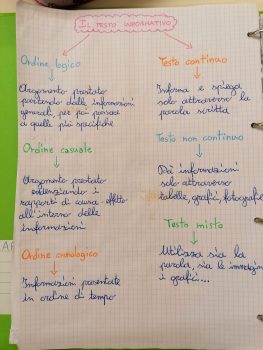 IL TESTO INFORMATIVO
Ordine logico
Argomento prestato
partendo dalle informazioni
generali, per poi passare
a quelle più specifiche
Ordine casuale
Argomento prestato
evidenziando i
rapporti di causa-effetto
all'interno delle
informazioni
Ordine cronologico
Informazioni presentate
in ordine di tempo
Testo continuo
Informa e spiega
solo attraverso la
parola scritta
Testo non continuo
Dà informazioni
solo attraverso
tabelle, grafici, fotografie
Testo misto
Utilizza sia la
parola, sia le immagini
i grafici...